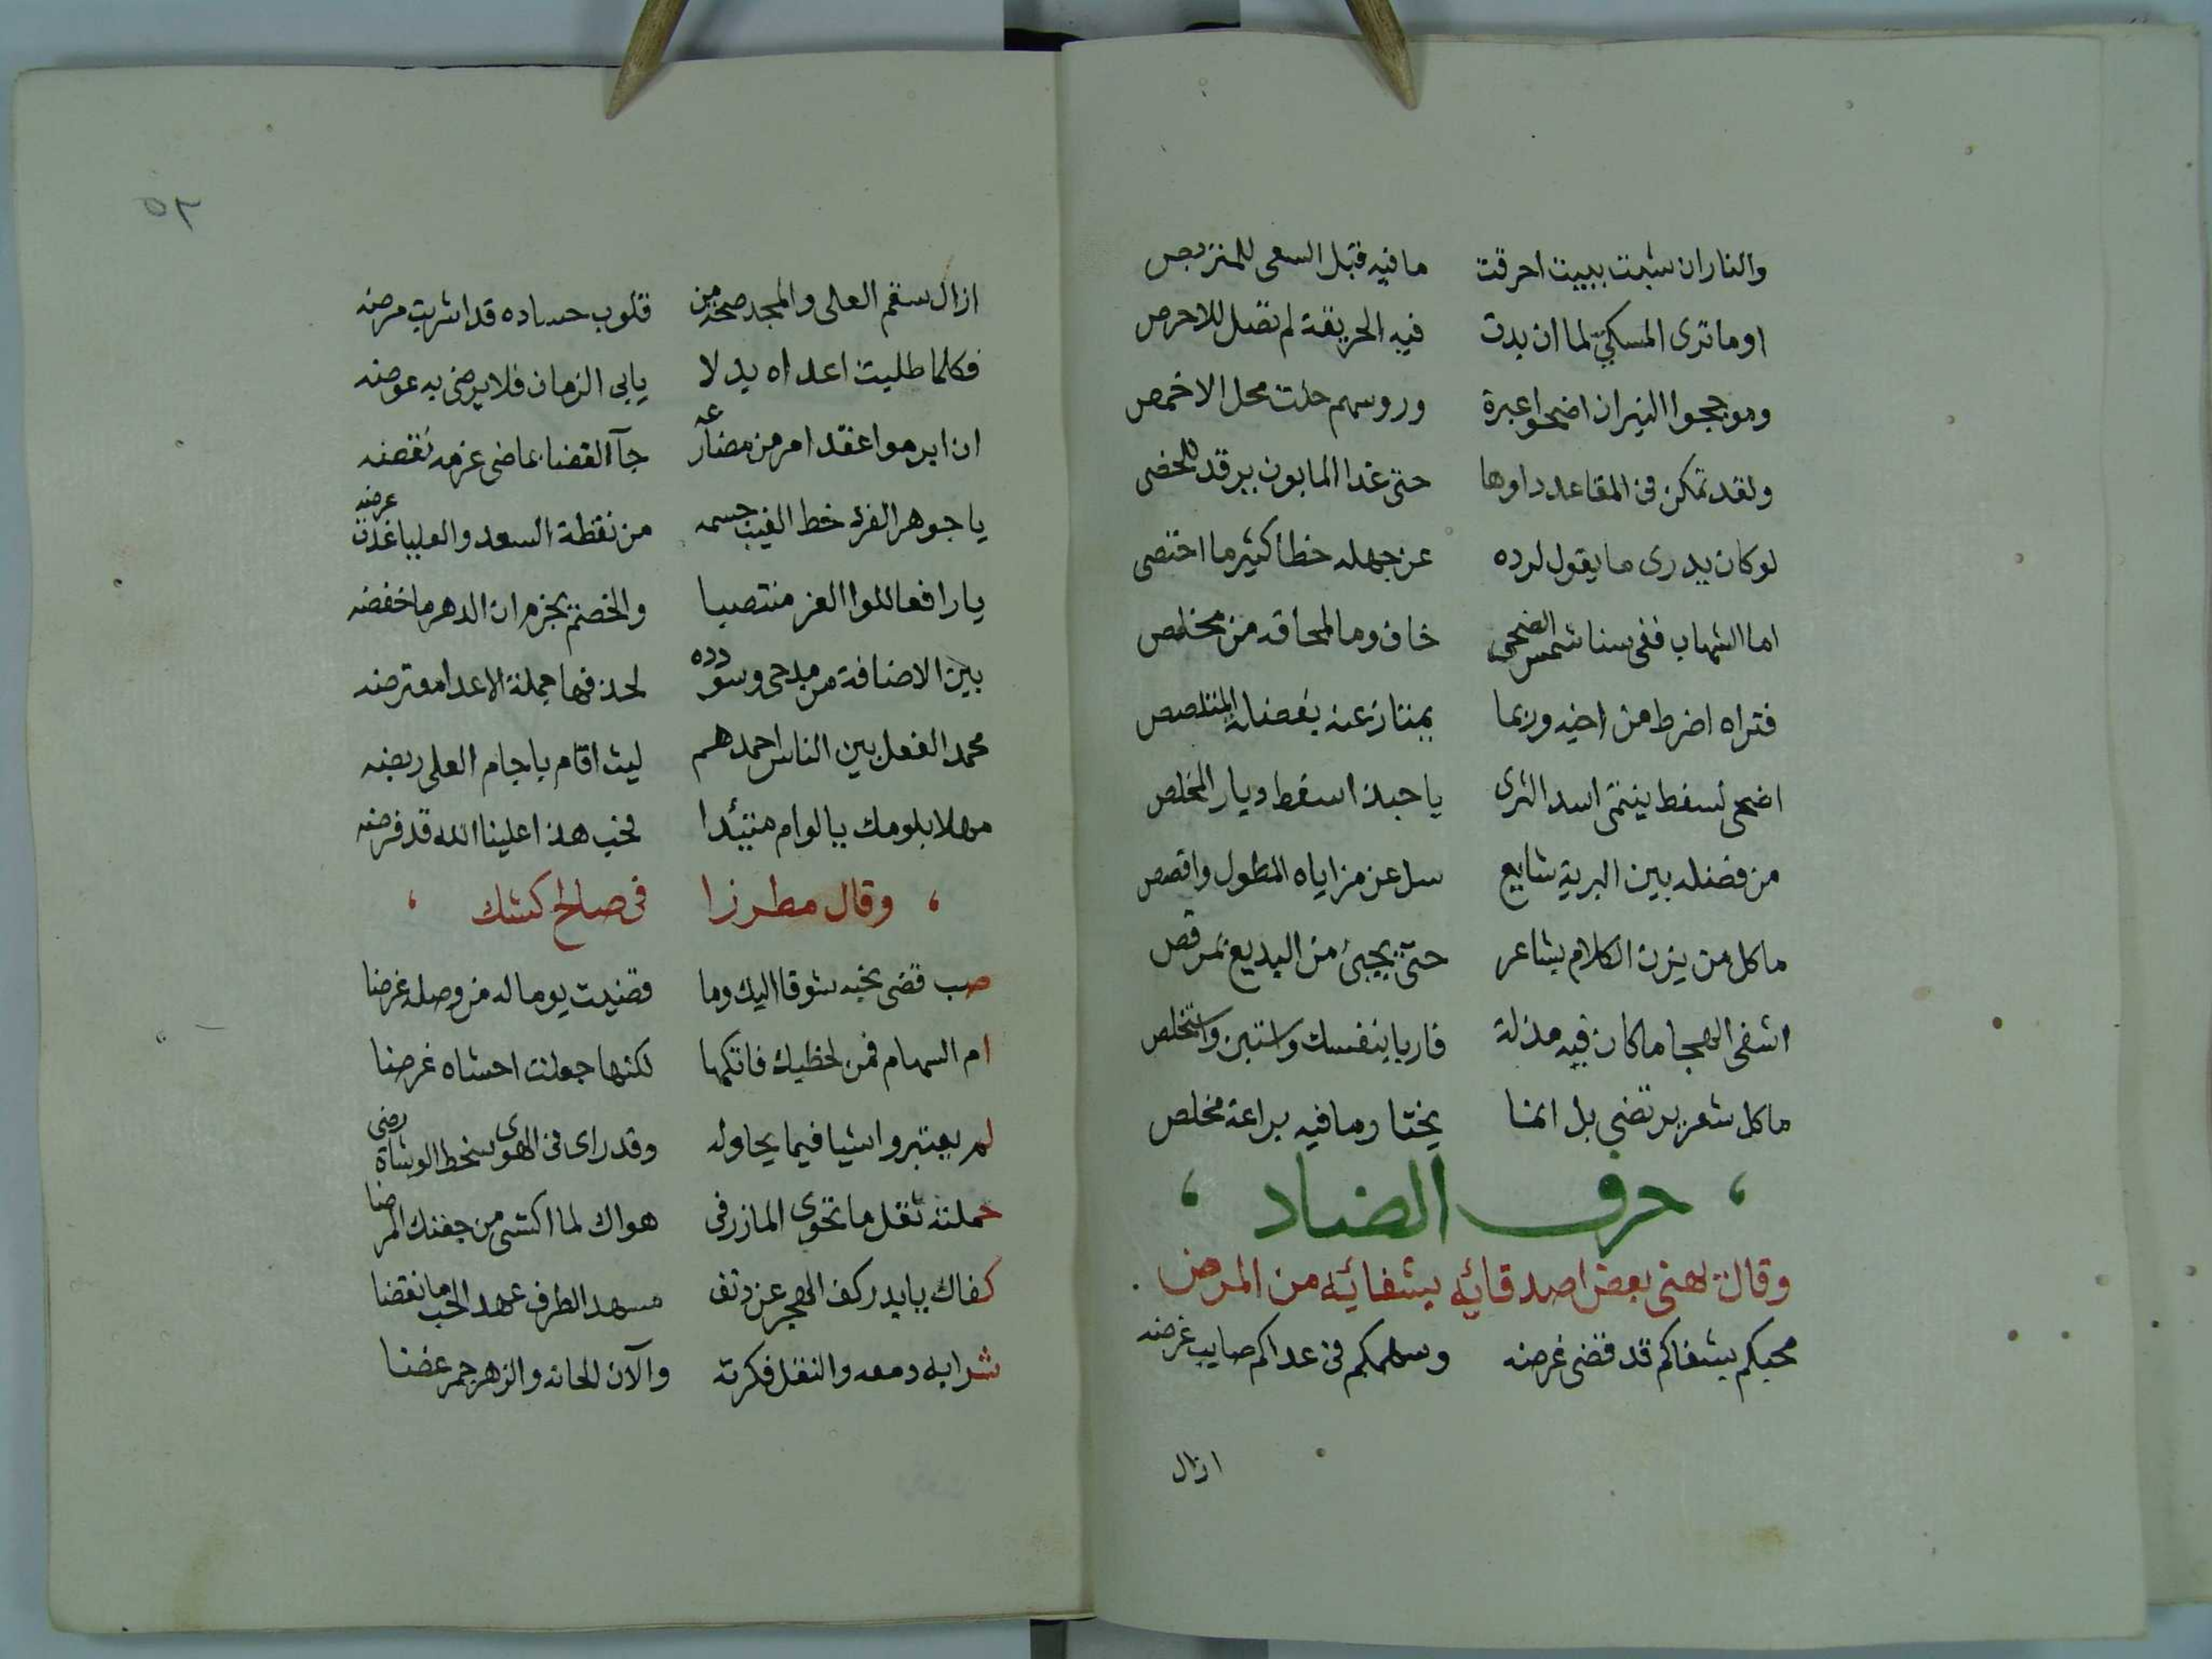 والنار ان شبت ببيت احرقت ما فيه قبل السعى للمتربص
او ما ترى المسكىّ لما ان بدت فيه الحريقة لم تصل للاحرص
ومؤججوا النيران اضحوا عبرة وروسهم حلت محل الاخمص
ولقد تمكن فى المقاعد داوها حتى غدا المابون يرقد للخصى
لو كان يدرى ما يقول لرده عن جهله خطا كثير ما اختصى
اما الشهاب ففى سنا شمس الضحى خاف وما لمحاقه من مخلص
فتراه اضرط من اخيه وربما يمتاز عنه بفضلة المتلصص
اضحى لسفط ينتمى اسد الثرى يا حبذا سفط ديار المخلص
من فضله بين البرية شايع سل عن مزاياه المطول واقصص
ما كل من يزن الكلام بشاعر حتى يجىء من البديع بمرقص
اشفى الهجا ما كان فيه مذلة فاربا بنفسك واستبن واستخلص
ما كل شعر يرتضى بل انما يختار ما فيه براعة مخلص
، حرف الضاد ،
وقال يهنى بعض اصدقائه بشفائه من المرض .
محبكم بشفاكم قد قضى غرضه وسهمكم فى عداكم صايب غرضه
ازال
٥٢
ازال سقم العلى والمجد صحة من قلوب حساده قد اشربت مرضه
فكلما طلبت اعداه بدلا يابى الزمان فلا يرضى به عوضه
ان ابرموا عقد امر من مضارعه جآ القضا بماضى عزمه نقضه
يا جوهر الفرد خط الغيب جسمه من نقطة السعد والعليا غدت عرضه
يا رافعا للوا العز منتصبا والخصم يجزم ان الدهر ما خفضه
بين الاضافة من مدحى وسودده لحذفها جملة الاعدا معترضه
محمد الفعل بين الناس احمدهم ليث اقام باجام العلى ربضه
مهلا بلومك يا لوام متئدا فحب هذا علينا الله قد فرضه
، وقال مطرزا فى صالح كشك ،
صب قضى نحبه شوقا اليك وما قضيت يوما له من وصله غرضا
ام السهام فمن لحظيك فاتكها لكنها جعلت احشاه غرضا
لم يعتبر واشيا فيما يحاوله وقد راى فى الهوى سخط الوشاة رضى
حملته ثقل ما تحوى المازر فى هواك لما اكتسى من جفنك المرضا
كفاك يا بدر كف الهجر عن دنف مسهد الطرف عهد الحب ما نقضا
شرابه دمعه والنقل فكرته والآن الحانه والزهر جمر غضا